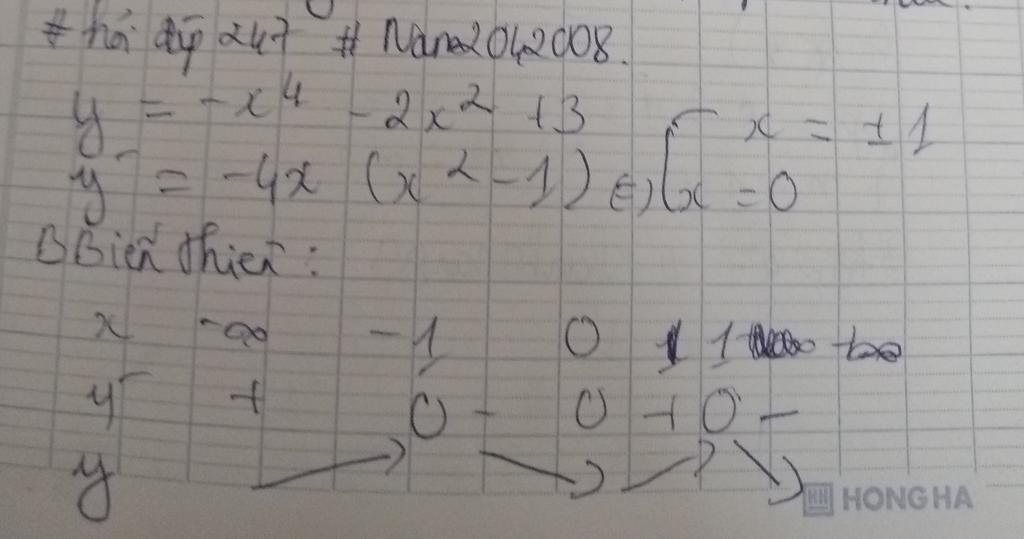 # hỏi đáp 247 # Nana2042008.
y = -x⁴ - 2x² + 3
y' = -4x (x² - 1) ⇔ [ x = ±1
x = 0
BBiến thiên :
x -∞ -1 0 1 +∞
y' + 0 - 0 + 0 -
y
HONG HA